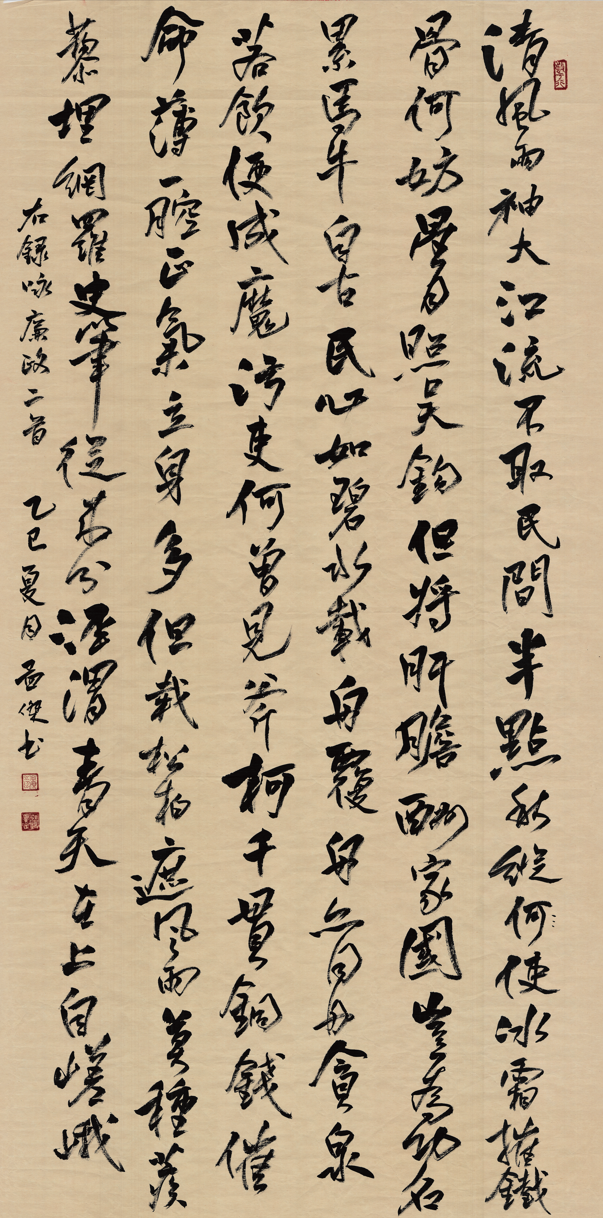 清風兩袖大江流不取民間半點秋縱何使冰霜摧鐵
骨何妨星月照吴鈎但將肝膽酬家國豈為功名
累馬牛自古民心如碧水載舟覆舟亦同舟貪泉
若飲便成魔污吏何曾見斧柯千貫銅錢催
命薄一腔正氣立身多但栽松柏遮風雨莫種蒺
藜埋網羅史筆從来分涇渭青天在上自嵯峨
右録咏廉政二首 乙巳夏月孟傑书